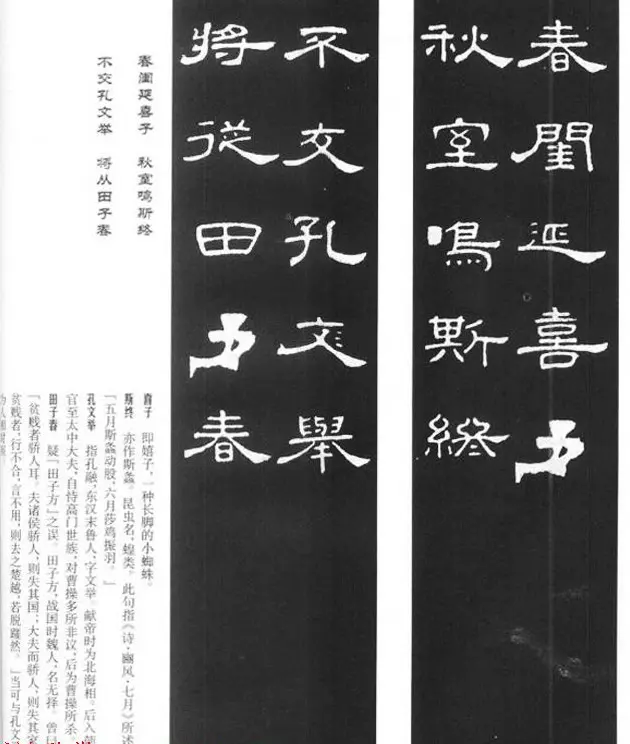 春閨延喜子
秋室鳴斯終
不交孔文舉
將從田子春
春闺延喜子 秋室鸣斯终
不交孔文举 将从田子春
喜子 即嬉子，一种长脚的小蜘蛛。
斯终 亦作斯螽。昆虫名，蝗类。此句指《诗·豳风·七月》所述
「五月斯螽动股，六月莎鸡振羽。」
孔文举 指孔融，东汉末鲁人，字文举。献帝时为北海相。后入
官至太中大夫，自恃高门世族，对曹操多所非议，后为曹操所杀。
田子春 疑「田子方」之误。田子方，战国时魏人，名无择。曾曰
「贫贱者骄人耳。夫诸侯骄人，则失其国；大夫而骄人，则失其家
贫贱者，行不合，言不用，则去之楚越，若脱躧然。」当可与孔文